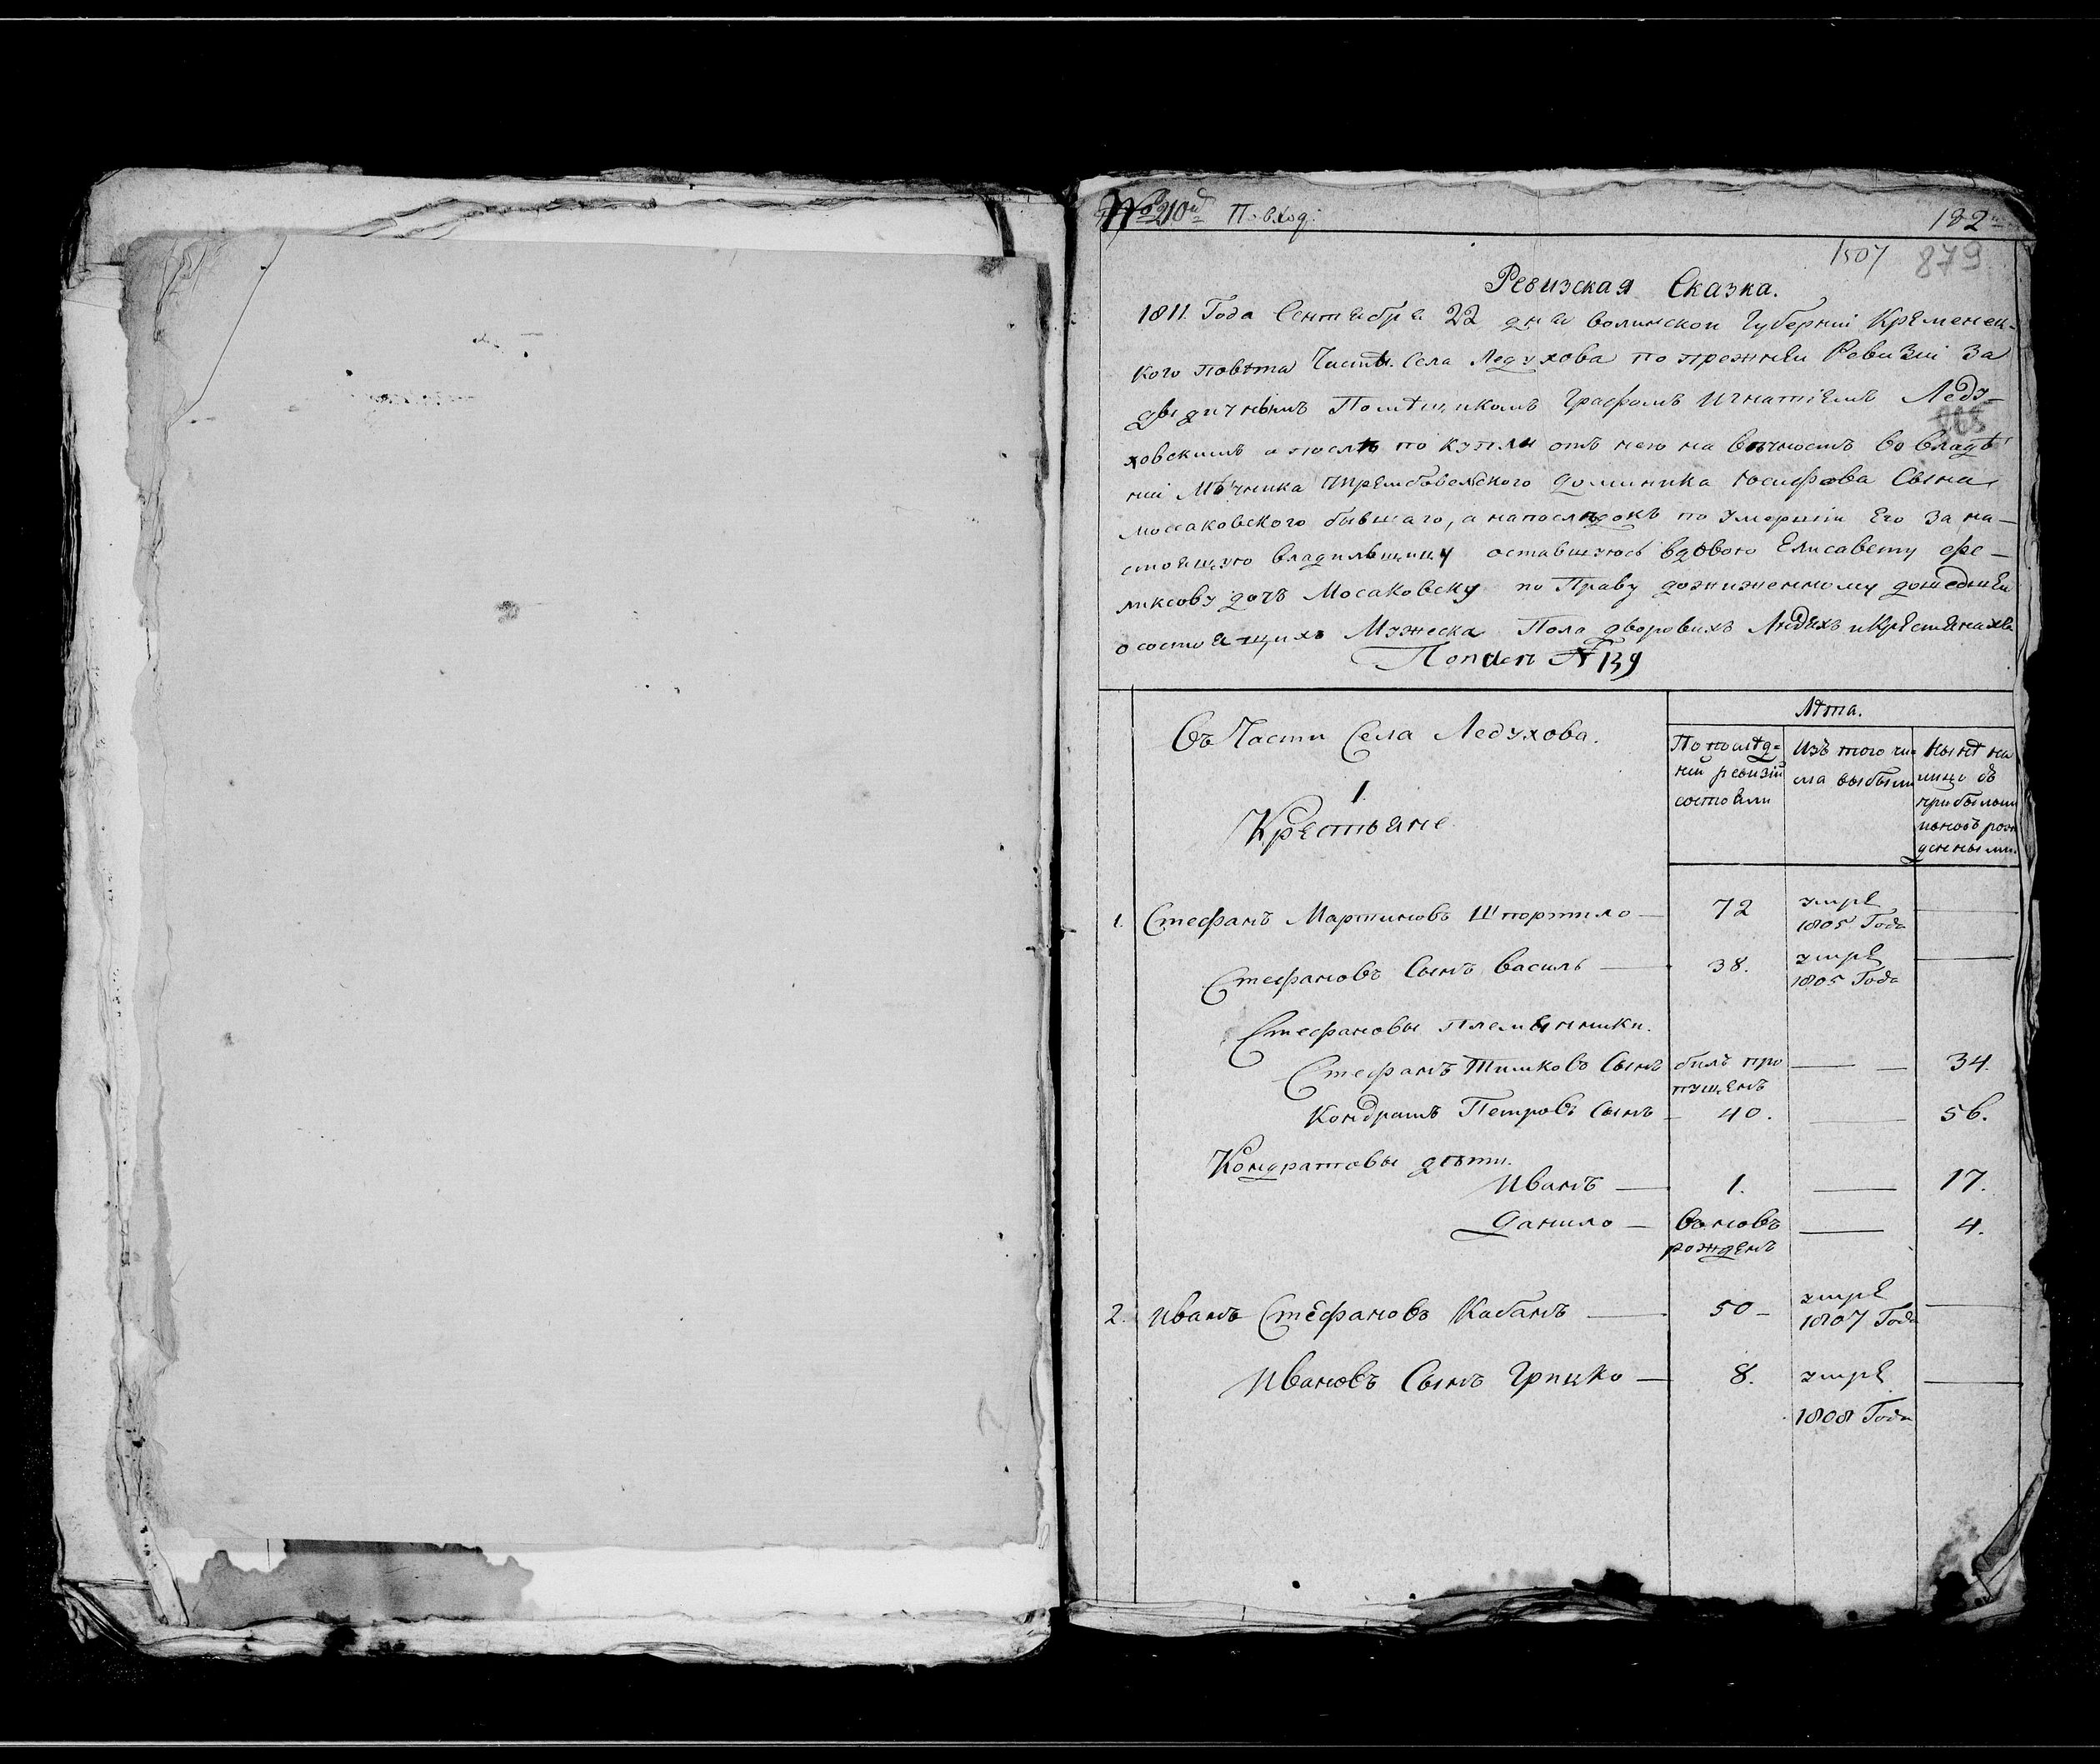 № 210й По вход:
182
1507 879
Ревизская Сказка.
1811. Года Сентября 22 дня волинской Губерніи Кременец-
кого повѣта Части Села Ледухова по прежней Ревизіи За
дѣдичнымъ Помѣщикомъ Графомъ Игнатіемъ Леду-
ховскимъ а послѣ по купли отъ него на вѣчность во владѣ
ніи Мѣчника Доминика Іосифова Сына
Мосаковского бывшаго, а напослѣдокъ по умертіи Его За на-
стоящую владѣльщицу оставшуюсь вдовою Елисавету Фе-
ликсову дочъ Мосаковску по Праву дожизненному дошедшей
о состоящихъ Мужеска Пола дворовихъ Людяхъ и Крестянахъ
№ 139
Въ Части Села Ледухова.
1.
Крестьяне
Лѣта.
По послѣд-
ней ревизіи
состояли
Изъ того чи-
сла выбыли
Нынѣ на
лицо съ
прибылыми
и вновь рож
денными.
1. Стефанъ Мартиновъ Шпортило — 72 умре 1805 Года —
Стефановъ Сынъ Василь — 38. умре 1805 Года —
Стефановы племянники.
Стефанъ Тимковъ Сынъ билъ про пущенъ — 34.
Кондратъ Петровъ Сынъ — 40. — 56.
Кондратовы дѣти.
Иванъ — 1. — 17.
Данило — вновь рожденъ — 4.
2. Иванъ Стефановъ Кабанъ — 50 — умре 1807 Года —
Ивановъ Сынъ Грицко — 8. умре 1808 Года —